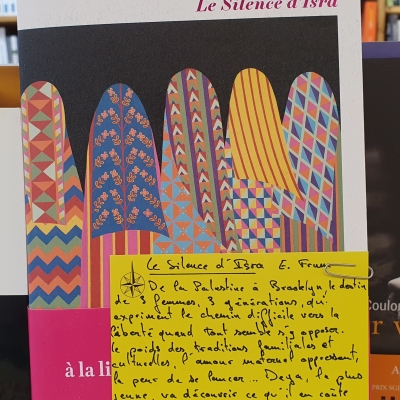 Le Silence d'Isra
Le Silence d'Isra E.
De la Palestine à Brooklyn, le destin
de 3 femmes, 3 générations, qui
expriment le chemin difficile vers la
liberté quand tout semble s'y opposer.
Le poids des traditions familiales et
culturelles, l'amour maternel oppressant,
la peur de se lancer... Deya, la plus
jeune, va découvrir ce qu'il en coûte
à la li
Coulo